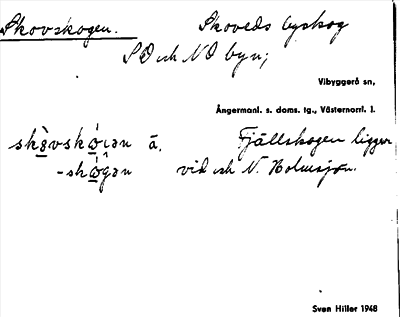 Skovskogen. Skoveds byskog
SO och NO byn;
Vibyggerå sn,
Ångermanl. s. doms. tg., Västernorrl. l.
ā, Fjällskogen ligger
vid och N. Holmsjön.
Sven Hiller 1948